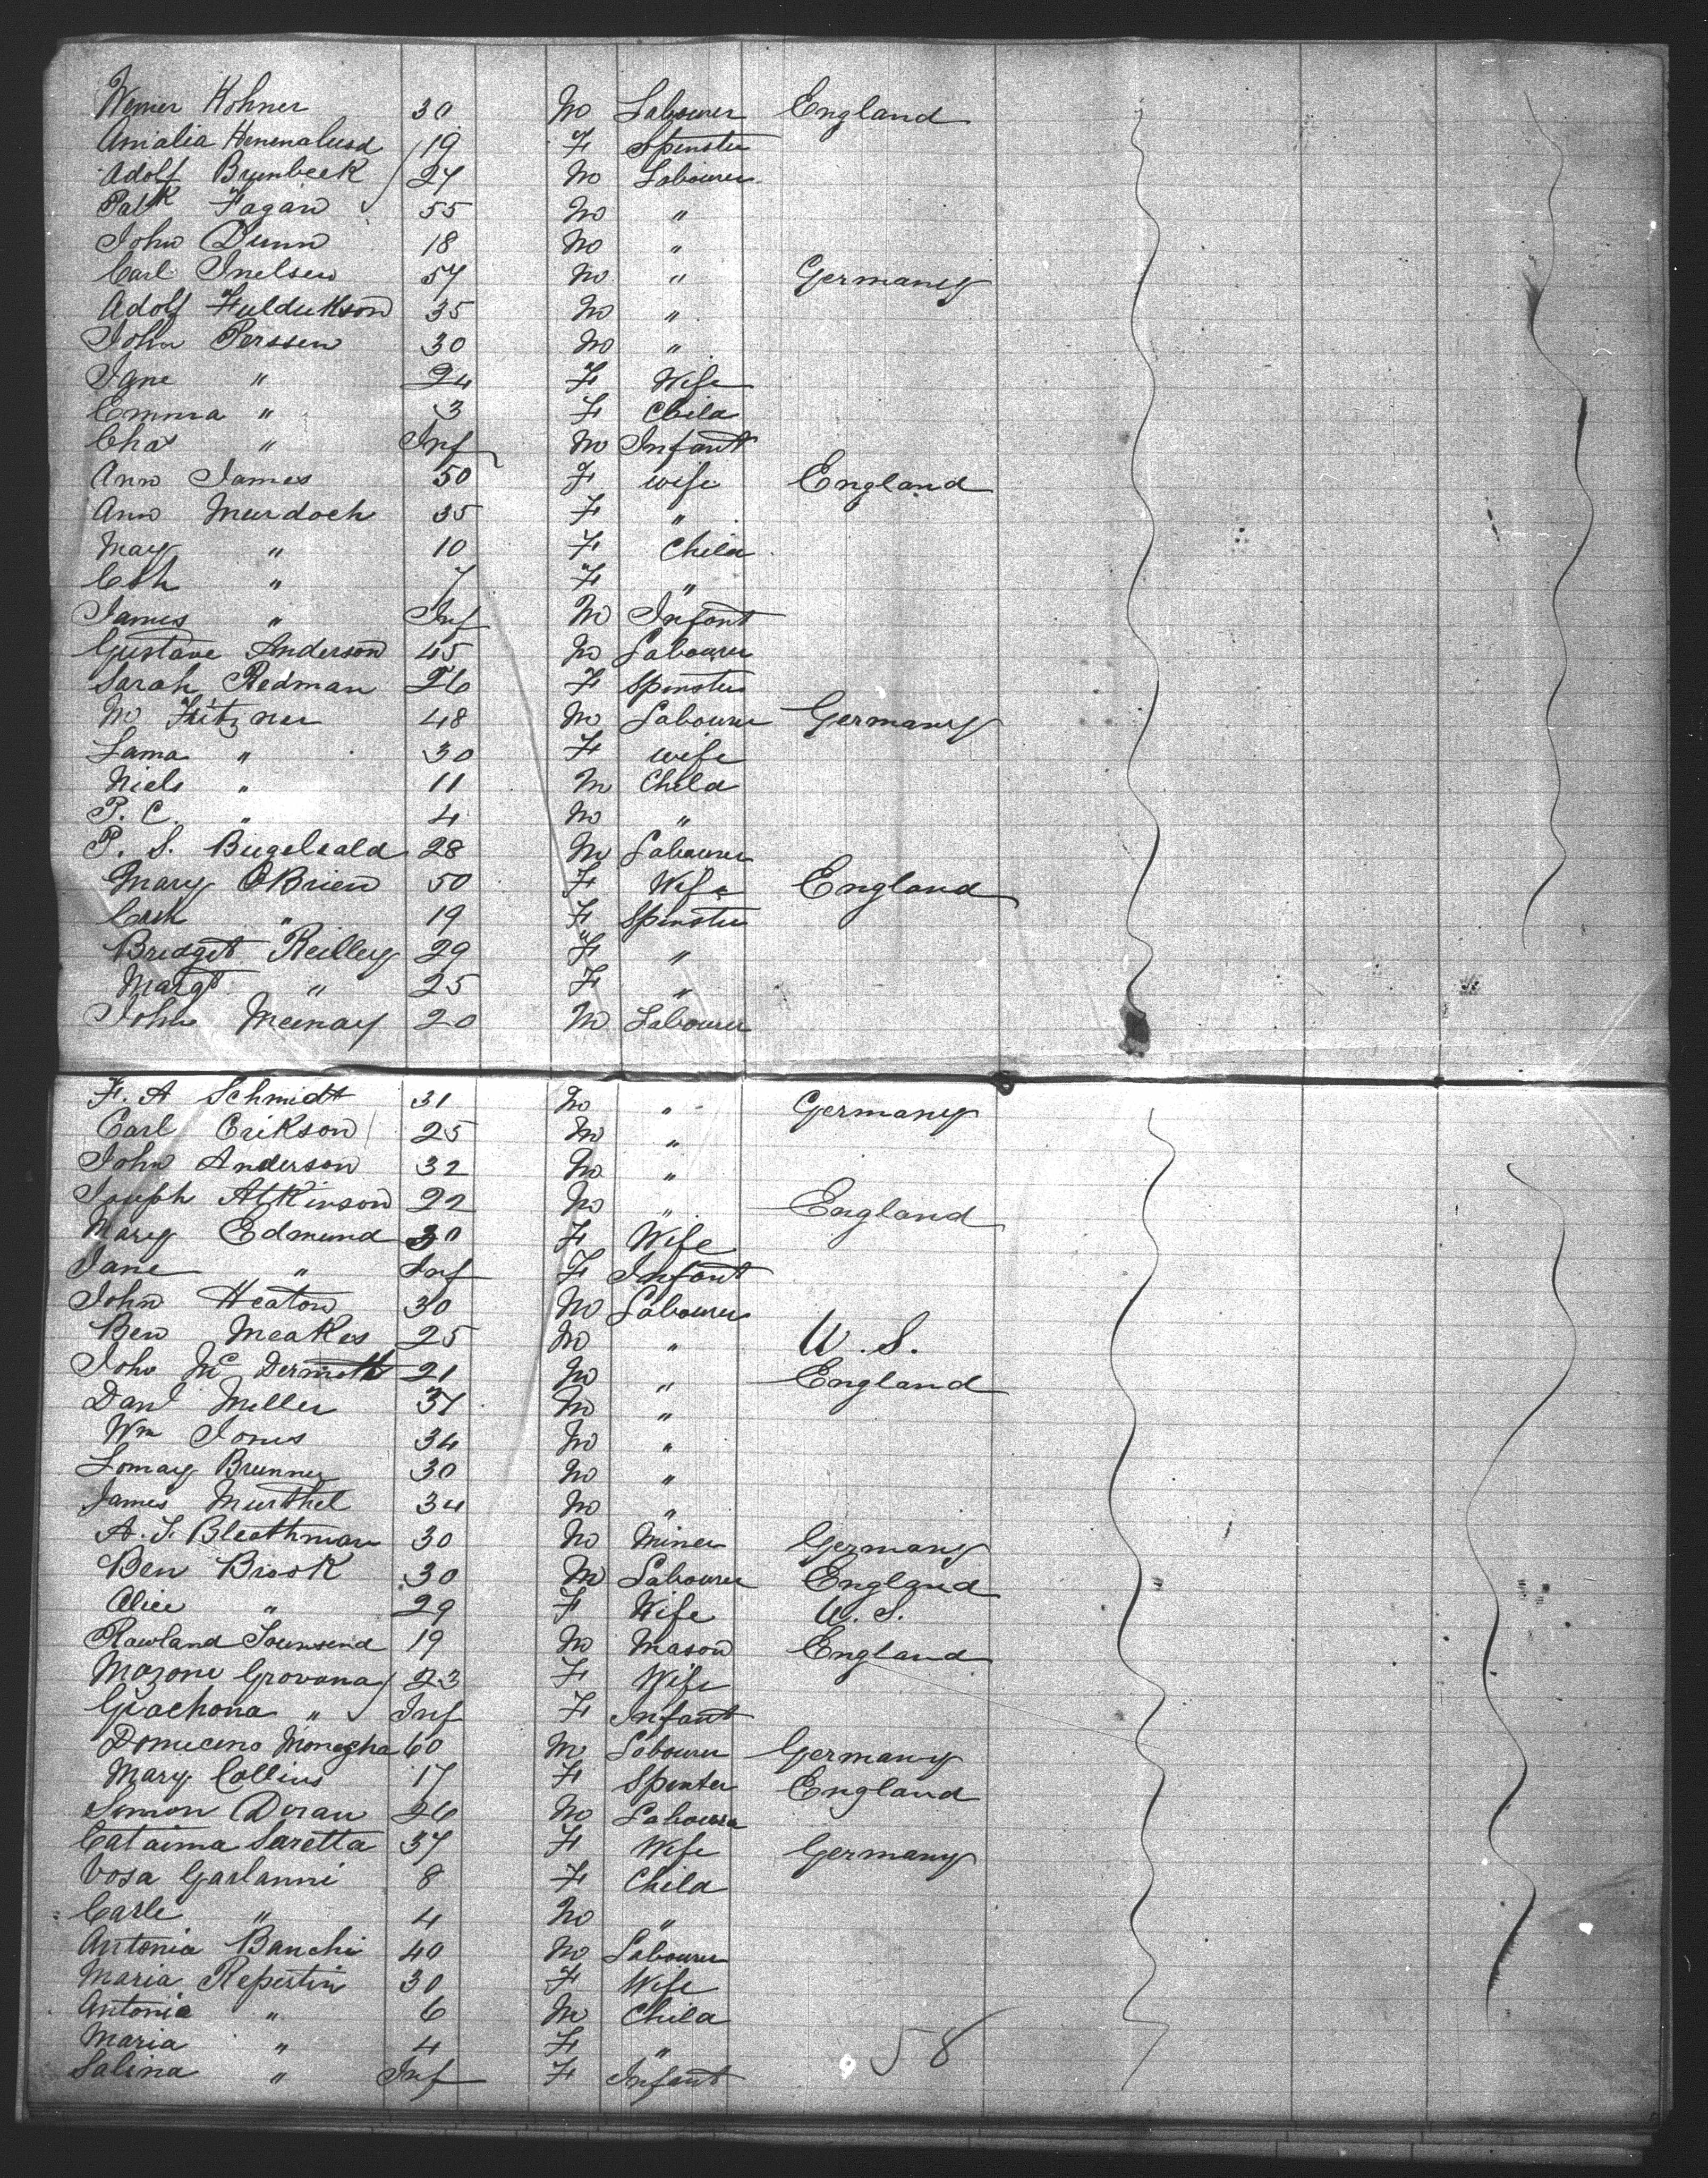 Werner Kohner 30 M Labourer England
Amalia 19 F Spinster
Adolf Brunbeck 27 M Labourer
Patk Fagan 55 M "
John Dunn 18 M "
Carl Inelsen 57 M " Germany
Adolf 35 M "
John Perssen 30 M "
Jane " 24 F Wife
Emma " 3 F Child
Chas " Inf M Infant
Ann James 50 F wife England
Ann Murdoch 35 F "
May " 10 F Child
Cath " 7 F "
James " Inf M Infant
Gustave Anderson 45 M Labourer
Sarah Redman 26 F Spinster
M Fitzner 48 M Labourer Germany
Lama " 30 F wife
Niels " 11 M Child
P. C. " 4 M "
P. S. 28 M Labourer
Mary OBrien 50 F Wife England
Cath " 19 F Spinster
Bridget Reilley 29 F "
Margt " 25 F "
John 20 M Labourer
F. A Schmidt 31 M " Germany
Carl Erikson 25 M "
John Anderson 32 M "
Joseph Atkinson 22 M " England
Mary Edmund 30 F Wife
Jane " Inf F Infant
John Heaton 30 M Labourer
Ben Meakes 25 M " U. S.
John McDermott 21 M " England
Danl Miller 37 M "
Wm Jones 34 M "
Lomay Brunner 30 M "
James Murthel 34 M "
A. J. Bleathman 30 M Miner Germany
Ben Brook 30 M Labourer England
Alice " 29 F Wife U. S.
Rowland Townsend 19 M Mason England
Mozone Grovona 23 F Wife
Grachona " Inf F Infant
Domuceno Monegha 60 M Labourer Germany
Mary Collins 17 F Spinster England
Simon Doran 26 M Labourer
Cataima Saretta 37 F Wife Germany
Vosa Garlanni 8 F Child
Carle " 4 M "
Antonia Banchi 40 M Labourer
Maria Repertin 30 F Wife
Antonia " 6 M Child
Maria " 4 F "
Salina " Inf F Infant
58